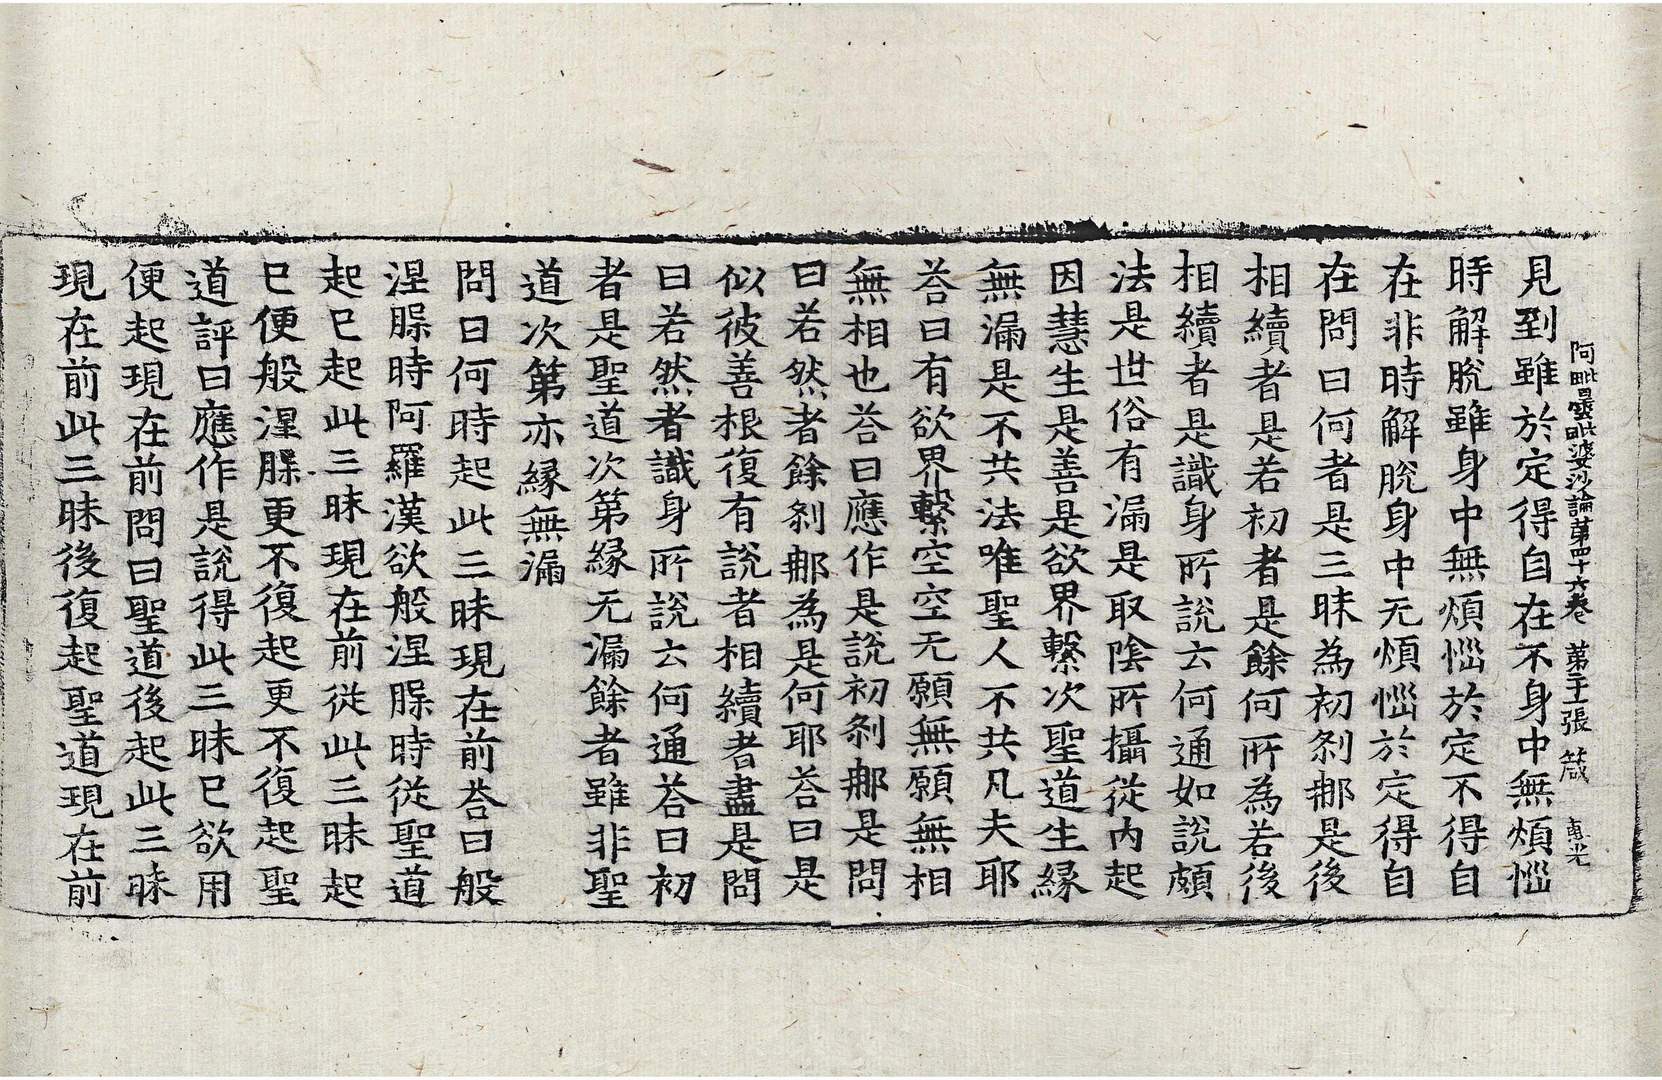 阿毗曇毗婆沙論第四十六卷 第二十張 箴 惠光
見到雖於定得自在不身中無煩惱
時解脫雖身中無煩惱於定不得自
在非時解脫身中无煩惱於定得自
在問曰何者是三昧為初剎那是後
相續者是若初者是餘何所為若後
相續者是識身所說云何通如說頗
法是世俗有漏是取陰所攝從內起
因慧生是善是欲界繫次聖道生緣
無漏是不共法唯聖人不共凡夫耶
荅曰有欲界繫空空无願無願無相
無相也荅曰應作是說初剎那是問
曰若然者餘剎那為是何耶荅曰是
似彼善根復有說者相續者盡是問
曰若然者識身所說云何通荅曰初
者是聖道次第緣无漏餘者雖非聖
道次第亦緣無漏
問曰何時起此三昧現在前荅曰般
涅槃時阿羅漢欲般涅槃時從聖道
起已起此三昧現在前從此三昧起
已便般涅槃更不復起更不復起聖
道評曰應作是說得此三昧已欲用
便起現在前問曰聖道後起此三昧
現在前此三昧後復起聖道現在前